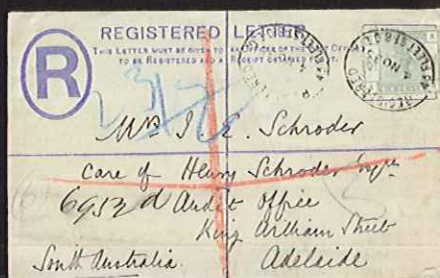 REGISTERED LETTER.
THIS LETTER MUST BE GIVEN TO AN OFFICER OF THE POST OFFICE
TO BE REGISTERED AND A RECEIPT OBTAINED FOR IT.
R
Mrs J. E. Schroder
Care of Henry Schroder Esqre
Audit Office
King William Street
South Australia. Adelaide